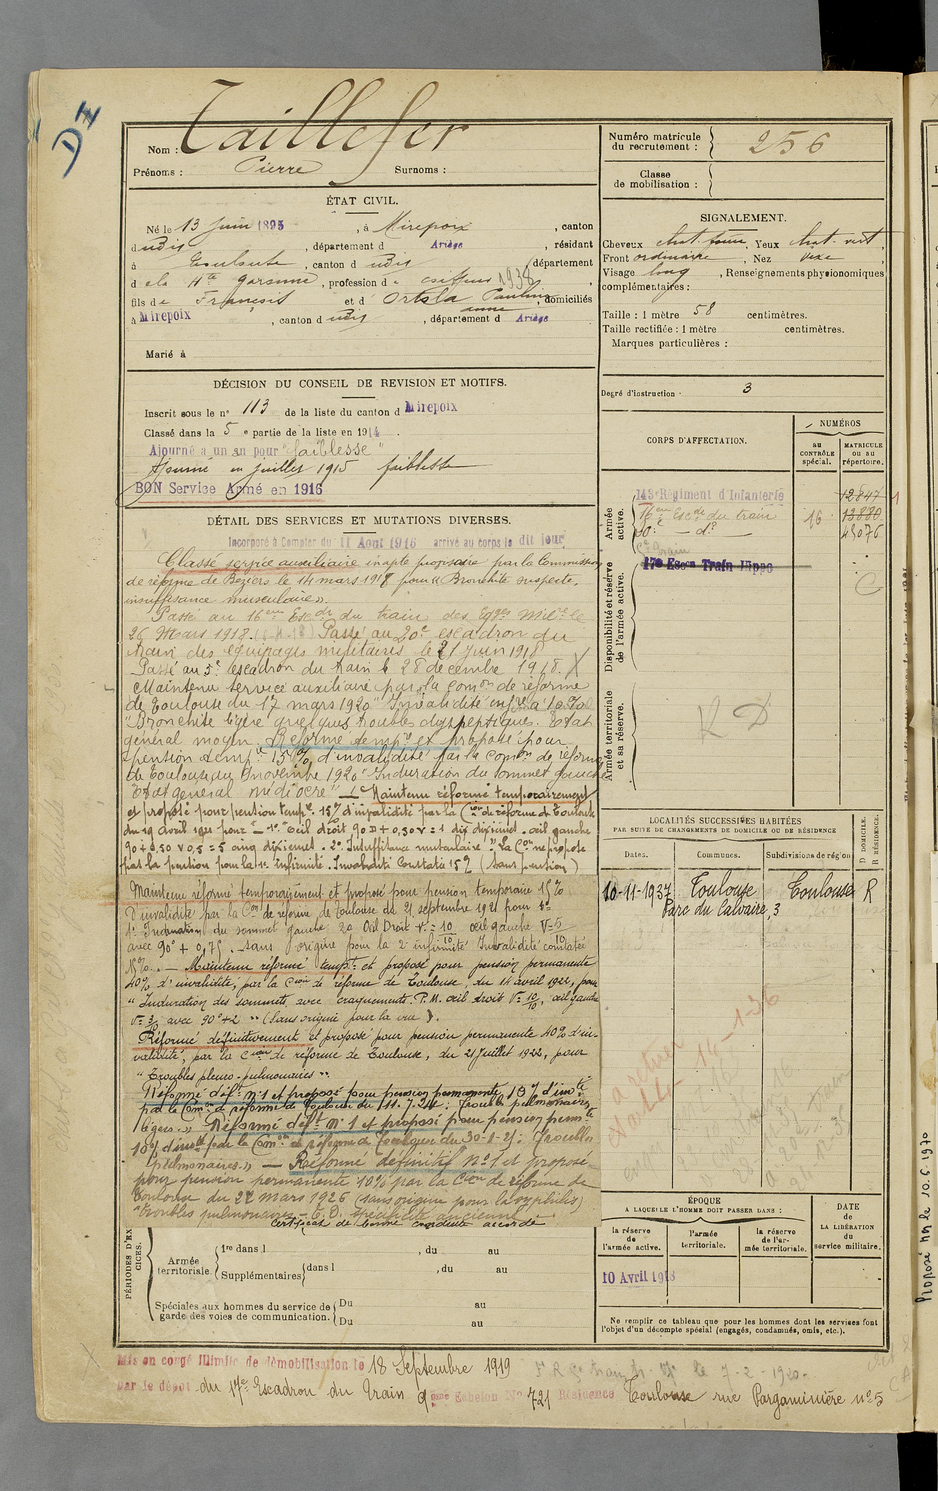 D II
Nom : Taillefer
Prénoms : Pierre Surnoms :
Numéro matricule du recrutement : 256
Classe de mobilisation :
ÉTAT CIVIL.
Né le 13 Juin 1895, à Mirepoix, canton
d udis, département d Ariège, résidant
à Toulouse, canton d udis, département
d e la Hte Garonne, profession d e coiffeur 1938
fils de François et d Ortola Pauline, domiciliés
anne
à Mirepoix, canton d udis, département d Ariège
Marié à
SIGNALEMENT.
Cheveux chat. foncé, Yeux chat. vert,
Front ordinaire, Nez vexe,
Visage long, Renseignements physionomiques
complémentaires :
Taille : 1 mètre 58 centimètres.
Taille rectifiée : 1 mètre centimètres.
Marques particulières :
Degré d'instruction : 3
DÉCISION DU CONSEIL DE REVISION ET MOTIFS.
Inscrit sous le n° 113 de la liste du canton d Mirepoix
Classé dans la 5 e partie de la liste en 1914.
Ajourné a un an pour "faiblesse"
Ajourné en Juillet 1915 faiblesse
BON Service Armé en 1916
DÉTAIL DES SERVICES ET MUTATIONS DIVERSES.
Incorporé à Compter du 11 Aout 1916 arrivé au corps le dit jour
Classé service auxiliaire inapte provisoire par la Commission
de réforme de Béziers le 14 mars 1918 pour "Bronchite suspecte,
insuffisance musculaire".
Passé au 16ème Escon du train des Eqges Milres le
26 Mars 1918. Passé au 20e escadron du
train des équipages militaires le 21 Juin 1918
Passé au 5e escadron du train le 28 décembre 1918. X
Maintenu service auxiliaire par la Comon de réforme
de Toulouse du 17 mars 1920 "Invalidité infre à 10%
"Bronchite légère quelques troubles dyspeptiques. Etat
général moyen. Réformé tempre et proposé pour
pension tempre 15% d'invalidité par la comon de réforme
de Toulouse du novembre 1920 "Induration du sommet gauche
Etat général médiocre" — Maintenu réformé temporairement
et proposé pour pension tempre 15% d'invalidité par la Cion de réforme de Toulouse
du 19 avril 1921 pour — 1° Oeil droit 90 D + 0,50 V = 1 dix dixièmes. œil gauche
90 + 0,50 V 0,5 = 5 cinq dixièmes. 2° Insuffisance musculaire. "La Con ne propose
pas la pension pour la 1re infirmité. Invalidité Constatée 15% (sans pension)
Maintenu réformé temporairement et proposé pour pension temporaire 15%
d'invalidité par la Con de réforme de Toulouse du 21 septembre 1921 pour
1° Induration du sommet gauche 2° Oeil Droit V = 10/10 œil gauche V = 5/10
avec 90° + 0,75. — sans origine pour la 2e infirmité Invalidité constatée
15%. — Maintenu réformé tempt et proposé pour pension permanente
40% d'invalidité, par la Cion de réforme de Toulouse, du 14 avril 1922, pour
"Induration des sommets avec craquements. P.M. œil droit V = 10/10, œil gauche
V = 3/ avec 90° + 2 " (Sans origine pour la vue).
Réformé définitivement et proposé pour pension permanente 40% d'in-
validité, par la Cion de réforme de Toulouse, du 21 Juillet 1922, pour
"Troubles pleuro-pulmonaires".
Réformé déft n° 1 et proposé pour pension permanente 15% d'invté
par la Comon de réforme de Toulouse du 11.7.24. Troubles pulmonaires
légers." Réformé déft N° 1 et proposé pour pension permte
10% d'invté par la Comon de réforme de Toulouse du 30-1-25: Troubles
pulmonaires." — Réformé définitif N° 1 et proposé
pour pension permanente 10% par la Cion de réforme de
Toulouse du 22 mars 1926 (sans origine pour la syphilis)
"Troubles pulmonaires — spécificité ancienne
Certificat de bonne conduite accordé
CORPS D'AFFECTATION.
NUMÉROS
au CONTRÔLE spécial.
MATRICULE ou au répertoire.
Armée active.
143 Régiment d'Infanterie 12847
16ème Escon du train 16 13880
20e — do — 45076
Disponibilité et réserve de l'armée active.
17e Escon Train Hippo
Armée territoriale et sa réserve.
R D
LOCALITÉS SUCCESSIVES HABITÉES
PAR SUITE DE CHANGEMENTS DE DOMICILE OU DE RÉSIDENCE
Dates. Communes. Subdivisions de région.
D DOMICILE. R RÉSIDENCE.
10-11-1937 Toulouse Toulouse R
Parc du Calvaire, 3
14-1-36
ÉPOQUE
A LAQUELLE L'HOMME DOIT PASSER DANS :
la réserve de l'armée active.
l'armée territoriale.
la réserve de l'armée territoriale.
DATE de LA LIBÉRATION du service militaire.
10 Avril 1918
Ne remplir ce tableau que pour les hommes dont les services font
l'objet d'un décompte spécial (engagés, condamnés, omis, etc.).
PÉRIODES D'EXERCICES.
Armée territoriale.
1re dans l , du au
Supplémentaires dans l , du au
Spéciales aux hommes du service de
garde des voies de communication.
Du au
Du au
Mis en congé illimité de démobilisation le 18 Septembre 1919
par le dépôt du 17e Escadron du Train 9ème Echelon No 721 Résidence Toulouse rue Pargaminière n° 5
le 7-2-1920.
Proposé le 10.6.1970